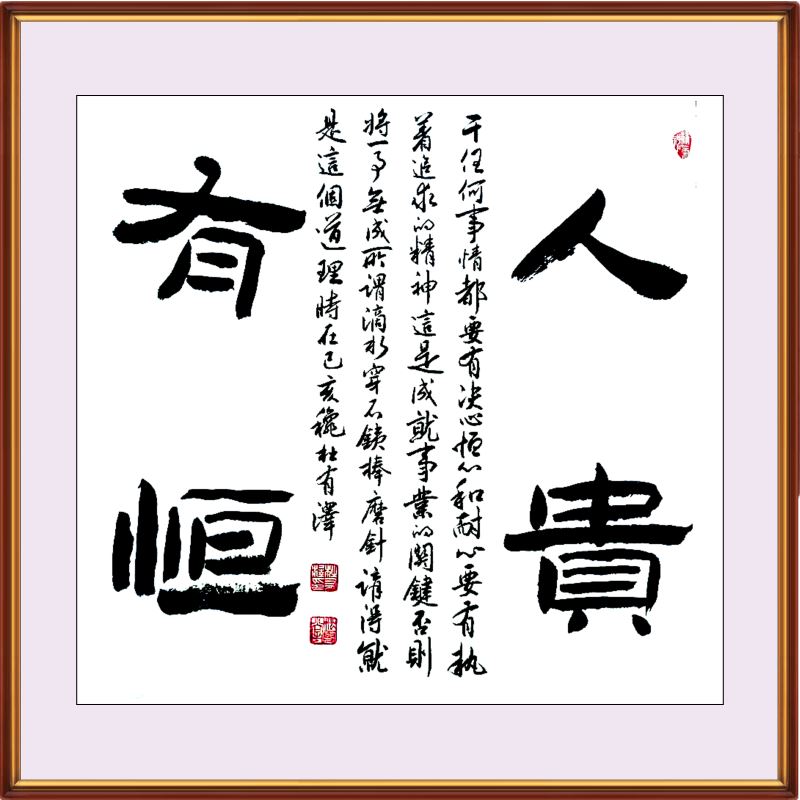 人貴
干任何事情都要有決心恒心和耐心要有執
着追求的精神這是成就事業的関鍵否則
將一事無成所謂滴水穿石鐵棒磨針講得就
是這個道理時在己亥龝杜有澤
有恒